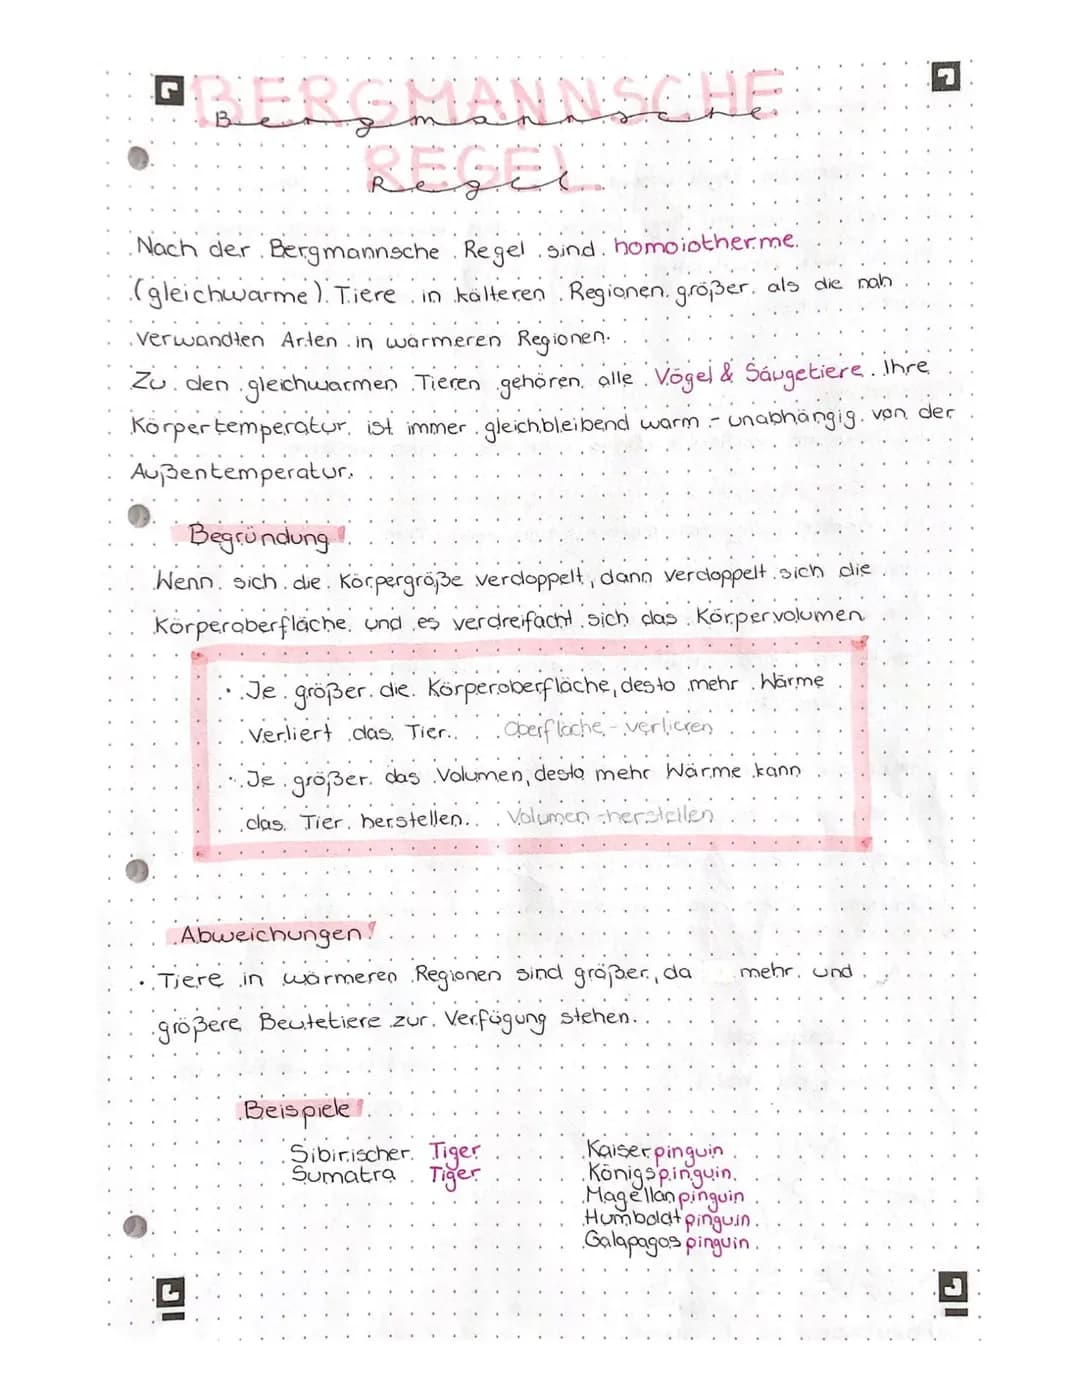 BERGMANNSCHE
Bergmannsche
REGEL
Regel
Nach der Bergmannsche Regel sind homoiotherme
(gleichwarme) Tiere in kälteren Regionen größer als die nah
verwandten Arten in wärmeren Regionen.
Zu den gleichwarmen Tieren gehören alle Vögel & Säugetiere. Ihre
Körpertemperatur ist immer gleichbleibend warm - unabhängig von der
Außentemperatur.
Begründung!
Wenn sich die Körpergröße verdoppelt, dann verdoppelt sich die
Körperoberfläche und es verdreifacht sich das Körpervolumen
· Je größer die Körperoberfläche, desto mehr Wärme
verliert das Tier. Oberfläche - verlieren
· Je größer das Volumen, desto mehr Wärme kann
das Tier herstellen. Volumen - herstellen
Abweichungen!
· Tiere in wärmeren Regionen sind größer, da mehr und
größere Beutetiere zur Verfügung stehen.
Beispiele!
Sibirischer Tiger
Sumatra Tiger
Kaiserpinguin
Königspinguin
Magellanpinguin
Humboldtpinguin
Galapagospinguin